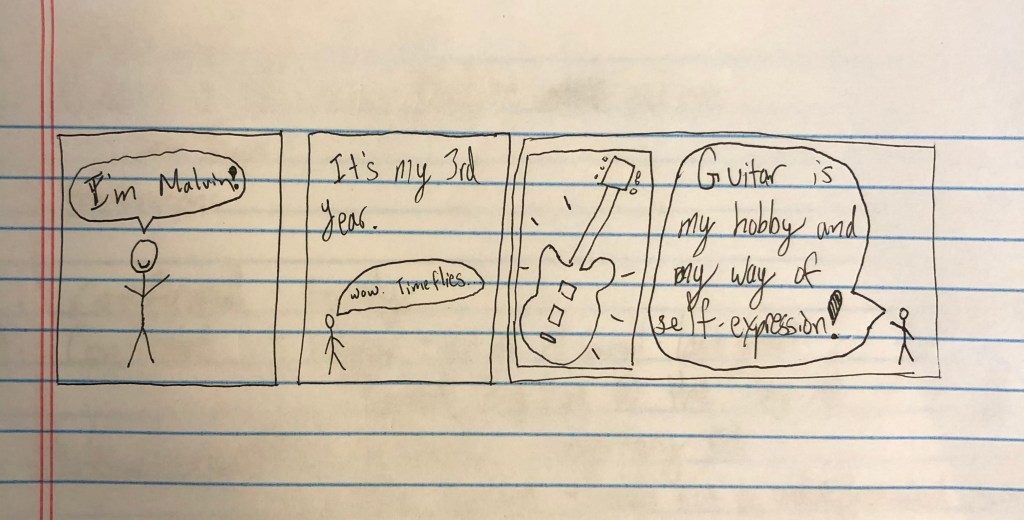 I'm Malvin!
It's my 3rd
year.
wow. Timeflies.
Guitar is
my hobby and
my way of
self-expression!